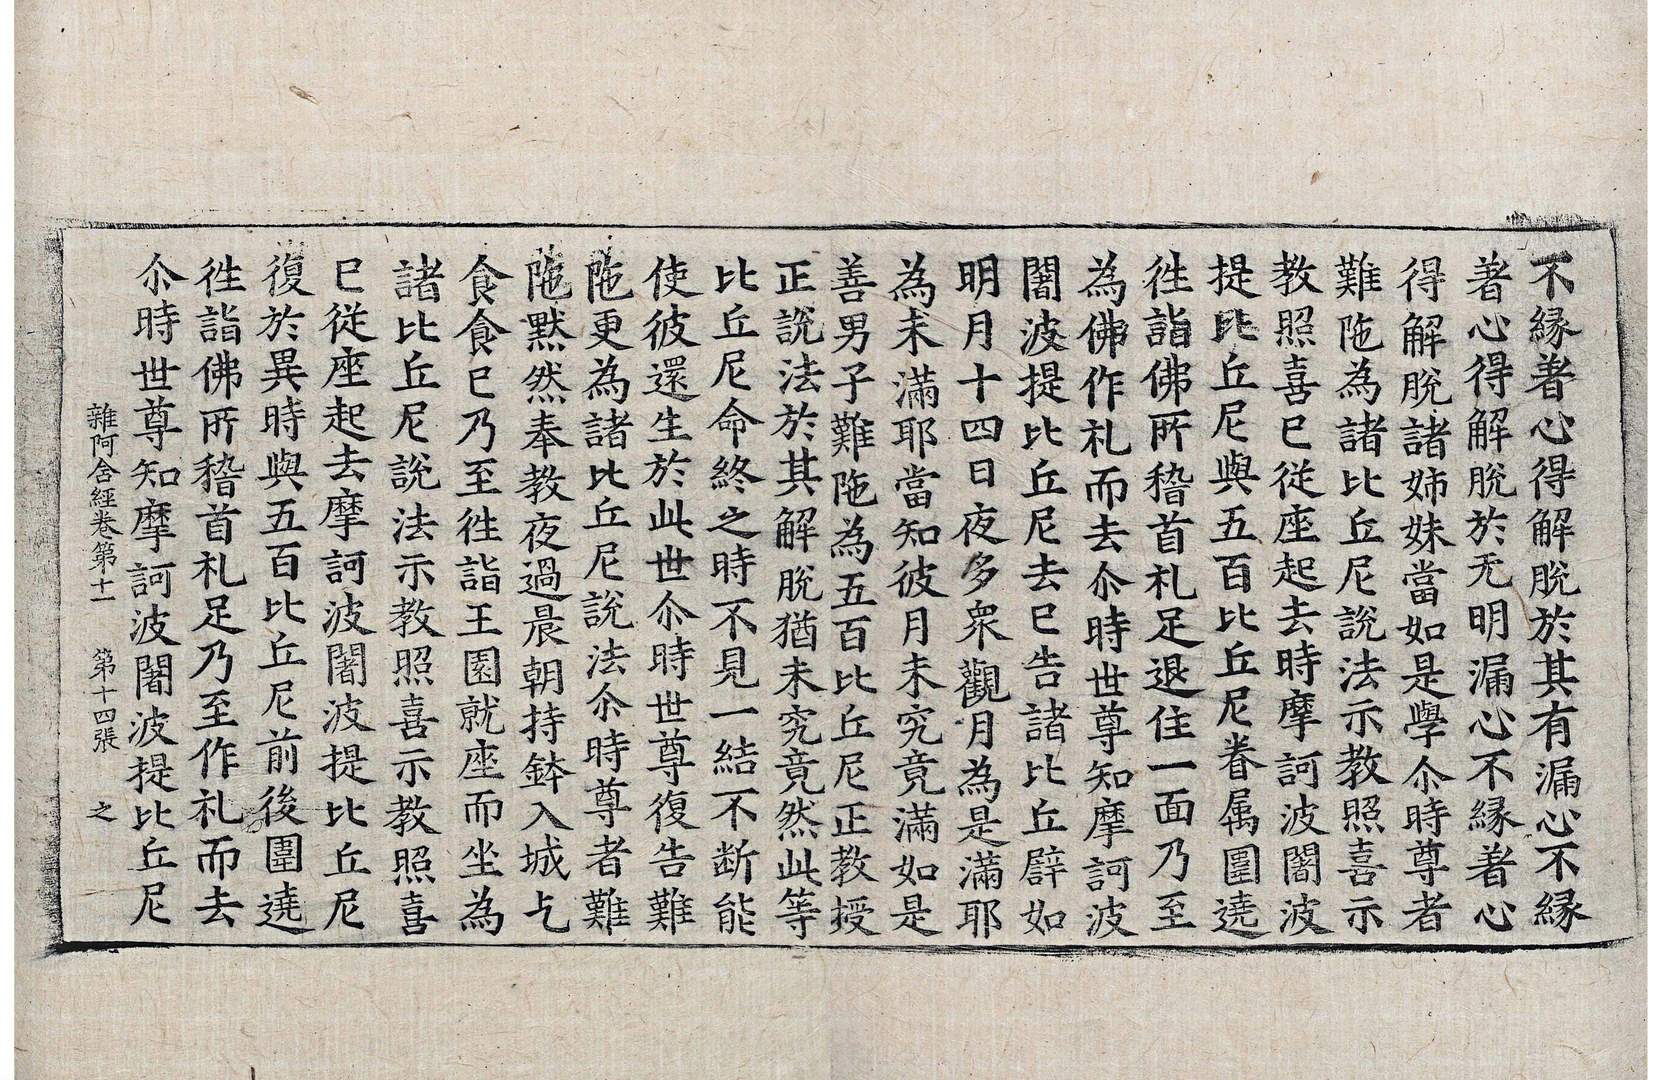 不縁著心得解脫於其有漏心不縁
著心得解脫於无明漏心不縁著心
得解脫諸姉妹當如是學尒時尊者
難陁為諸比丘尼說法示教照喜示
教照喜已從座起去時摩訶波闍波
提比丘尼與五百比丘尼眷属圍遶
徃詣佛所稽首札足退住一面乃至
為佛作札而去尒時世尊知摩訶波
闍波提比丘尼去已告諸比丘辟如
明月十四日夜多衆觀月為是滿耶
為未滿耶當知彼月未究竟滿如是
善男子難陁為五百比丘尼正教授
正說法於其解脫猶未究竟然此等
比丘尼命終之時不見一結不断能
使彼還生於此世尒時世尊復告難
陁更為諸比丘尼說法尒時尊者難
陁默然奉教夜過晨朝持鉢入城乞
食食已乃至徃詣王園就座而坐為
諸比丘尼說法示教照喜示教照喜
已從座起去摩訶波闍波提比丘尼
復於異時與五百比丘尼前後圍遶
徃詣佛所稽首札足乃至作札而去
尒時世尊知摩訶波闍波提比丘尼
雜阿含經卷第十一 第十四張 之